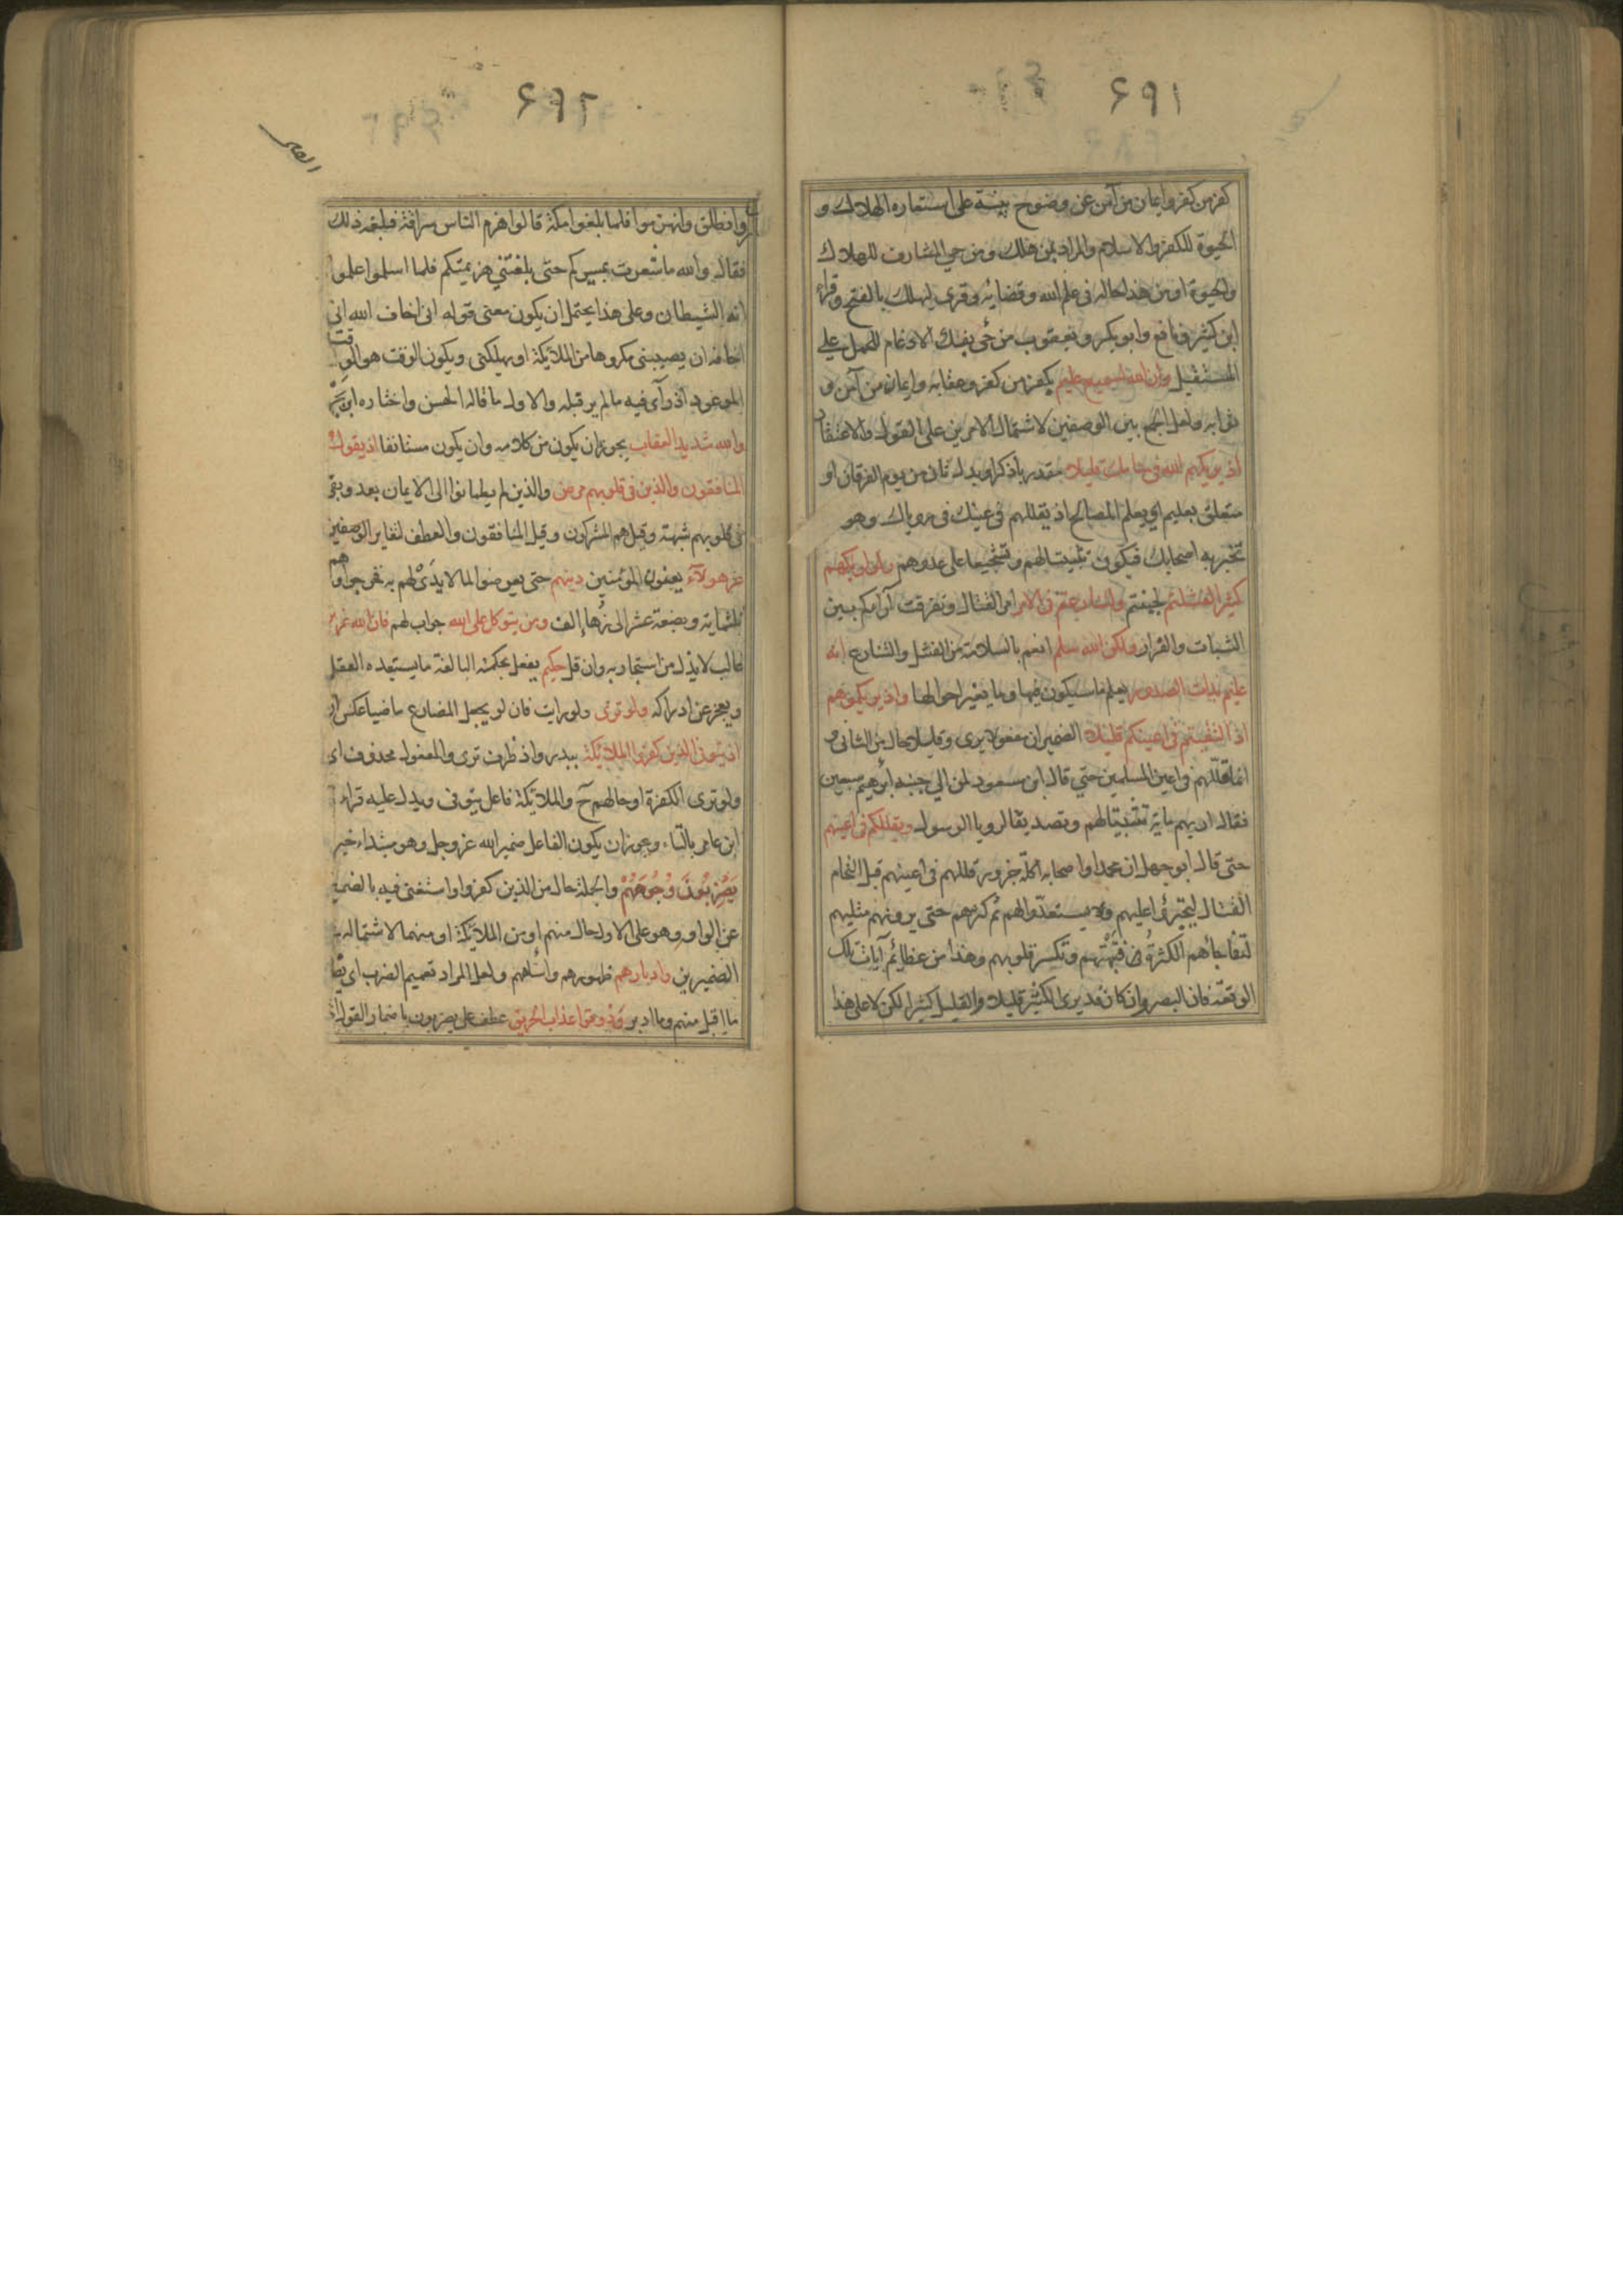 ۶۹۱
كفر من كفر وايمان من آمن عن وضوح بينة على استعاره الهلاك و
الحيوة للكفر والاسلام والمراد بمن هلك ومن حي المشارف للهلاك
والحيوة او من هذا حاله فى علم الله وقضائه وقرى ليهلك بالفتح وقراء
ابن كثير ونافع وابو بكر ويعقوب من حيى بفك الادغام للحمل على
المستقبل وان الله لسميع عليم بكفر من كفر وعقابه وايمان من آمن و
ثوابه ولعل الجمع بين الوصفين لاشتمال الامرين على القول والاعتقاد
اذ يريكهم الله فى منامك قليلا مقدر باذكر او بدل ثان من يوم الفرقان او
متعلق بعليم اى يعلم المصالح اذ يقللهم فى عينك فى روياك وهو
تخبر به اصحابك فيكون تثبيتا لهم وتشجيعا على عدوهم ولو اريكهم
كثيرا لفشلتم لجبنتم ولتنازعتم فى الامر امر القتال وتفرقت آراءكم بين
الثبات والفرار ولكن الله سلم انعم بالسلامة من الفشل والتنازع انه
عليم بذات الصدور يعلم ما سيكون فيها وما يغير احوالها واذ يريكموهم
اذ التقيتم فى اعينكم قليلا الضميران مفعولا يرى وقليلا حال من الثانى و
انما قللهم فى اعين المسلمين حتى قال ابن مسعود لمن الى جنبه اتريهم سبعين
فقال اريهم ماية تثبيتا لهم وتصديقا لرويا الرسول ويقللكم فى اعينهم
حتى قال ابو جهل ان محمدا واصحابه اكلة جزور قللهم فى اعينهم قبل التحام
القتال ليجترؤا عليهم ولا يستعدوا لهم ثم كثرهم حتى يرونهم مثليهم
لتفاجأهم الكثرة فتبهتهم وتكسر قلوبهم وهذا من عظائم آيات تلك
الوقعة فان البصر وان كان قد يرى الكثير قليلا والقليل كثيرا لكن لا على هذا
۶۹۲
وانطلق وانهزموا فلما بلغوا مكة قالوا هزم الناس سراقة فبلغه ذلك
فقال والله ما شعرت بمسيركم حتى بلغتنى هزيمتكم فلما اسلموا علموا
انه الشيطان وعلى هذا يحتمل ان يكون معنى قوله انى اخاف الله انى
اخافه ان يصيبنى مكروها من الملائكة او يهلكنى ويكون الوقت هو الوقت
الموعود اذ رآى فيه ما لم ير قبله والاول ما قاله الحسن واختاره ابن بحر
والله شديد العقاب يجوز ان يكون من كلامه وان يكون مستانفا اذ يقول
المنافقون والذين فى قلوبهم مرض والذين لم يطمانوا الى الايمان بعد وبقى
فى قلوبهم شبهة وقيل هم المشركون وقيل المنافقون والعطف لتغاير الوصفين
غر هولآء يعنون المؤمنين دينهم حتى تعرضوا لما لا يدى لهم به فخرجوا وهم
ثلثماية وبضعة عشر الى زهاء الف ومن يتوكل على الله جواب لهم فان الله عزيز
غالب لا يذل من استجار به وان قل حكيم يفعل بحكمته البالغة ما يستبعده العقل
ويعجز عن ادراكه ولو ترى ولو رايت فان لو يجعل المضارع ماضيا عكس ان
اذ يتوفى الذين كفروا الملائكة ببدر واذ ظرف ترى والمفعول محذوف اى
ولو ترى الكفرة او حالهم ح والملائكة فاعل يتوفى ويدل عليه قراءة
ابن عامر بالتاء ويجوز ان يكون الفاعل ضمير الله عز وجل وهو مبتداء خبر
يضربون وجوههم والجملة حال من الذين كفروا واستغنى فيه بالضمير
عن الواو وهو على الاول حال منهم او من الملائكة او منهما لاشتماله
الضميرين وادبارهم ظهورهم واستاههم ولعل المراد تعميم الضرب اى
ما اقبل منهم وما ادبر وذوقوا عذاب الحريق عطف على يضربون باضمار القول